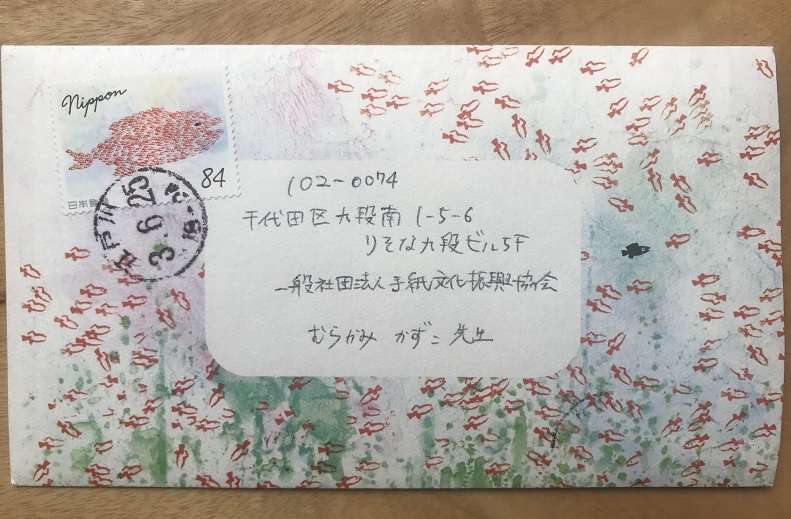 Nippon
84
日本郵便
江戸川
3.6.25
102-0074
千代田区九段南1-5-6
りそな九段ビル5F
一般社団法人手紙文化振興協会
むらかみ かずこ 先生